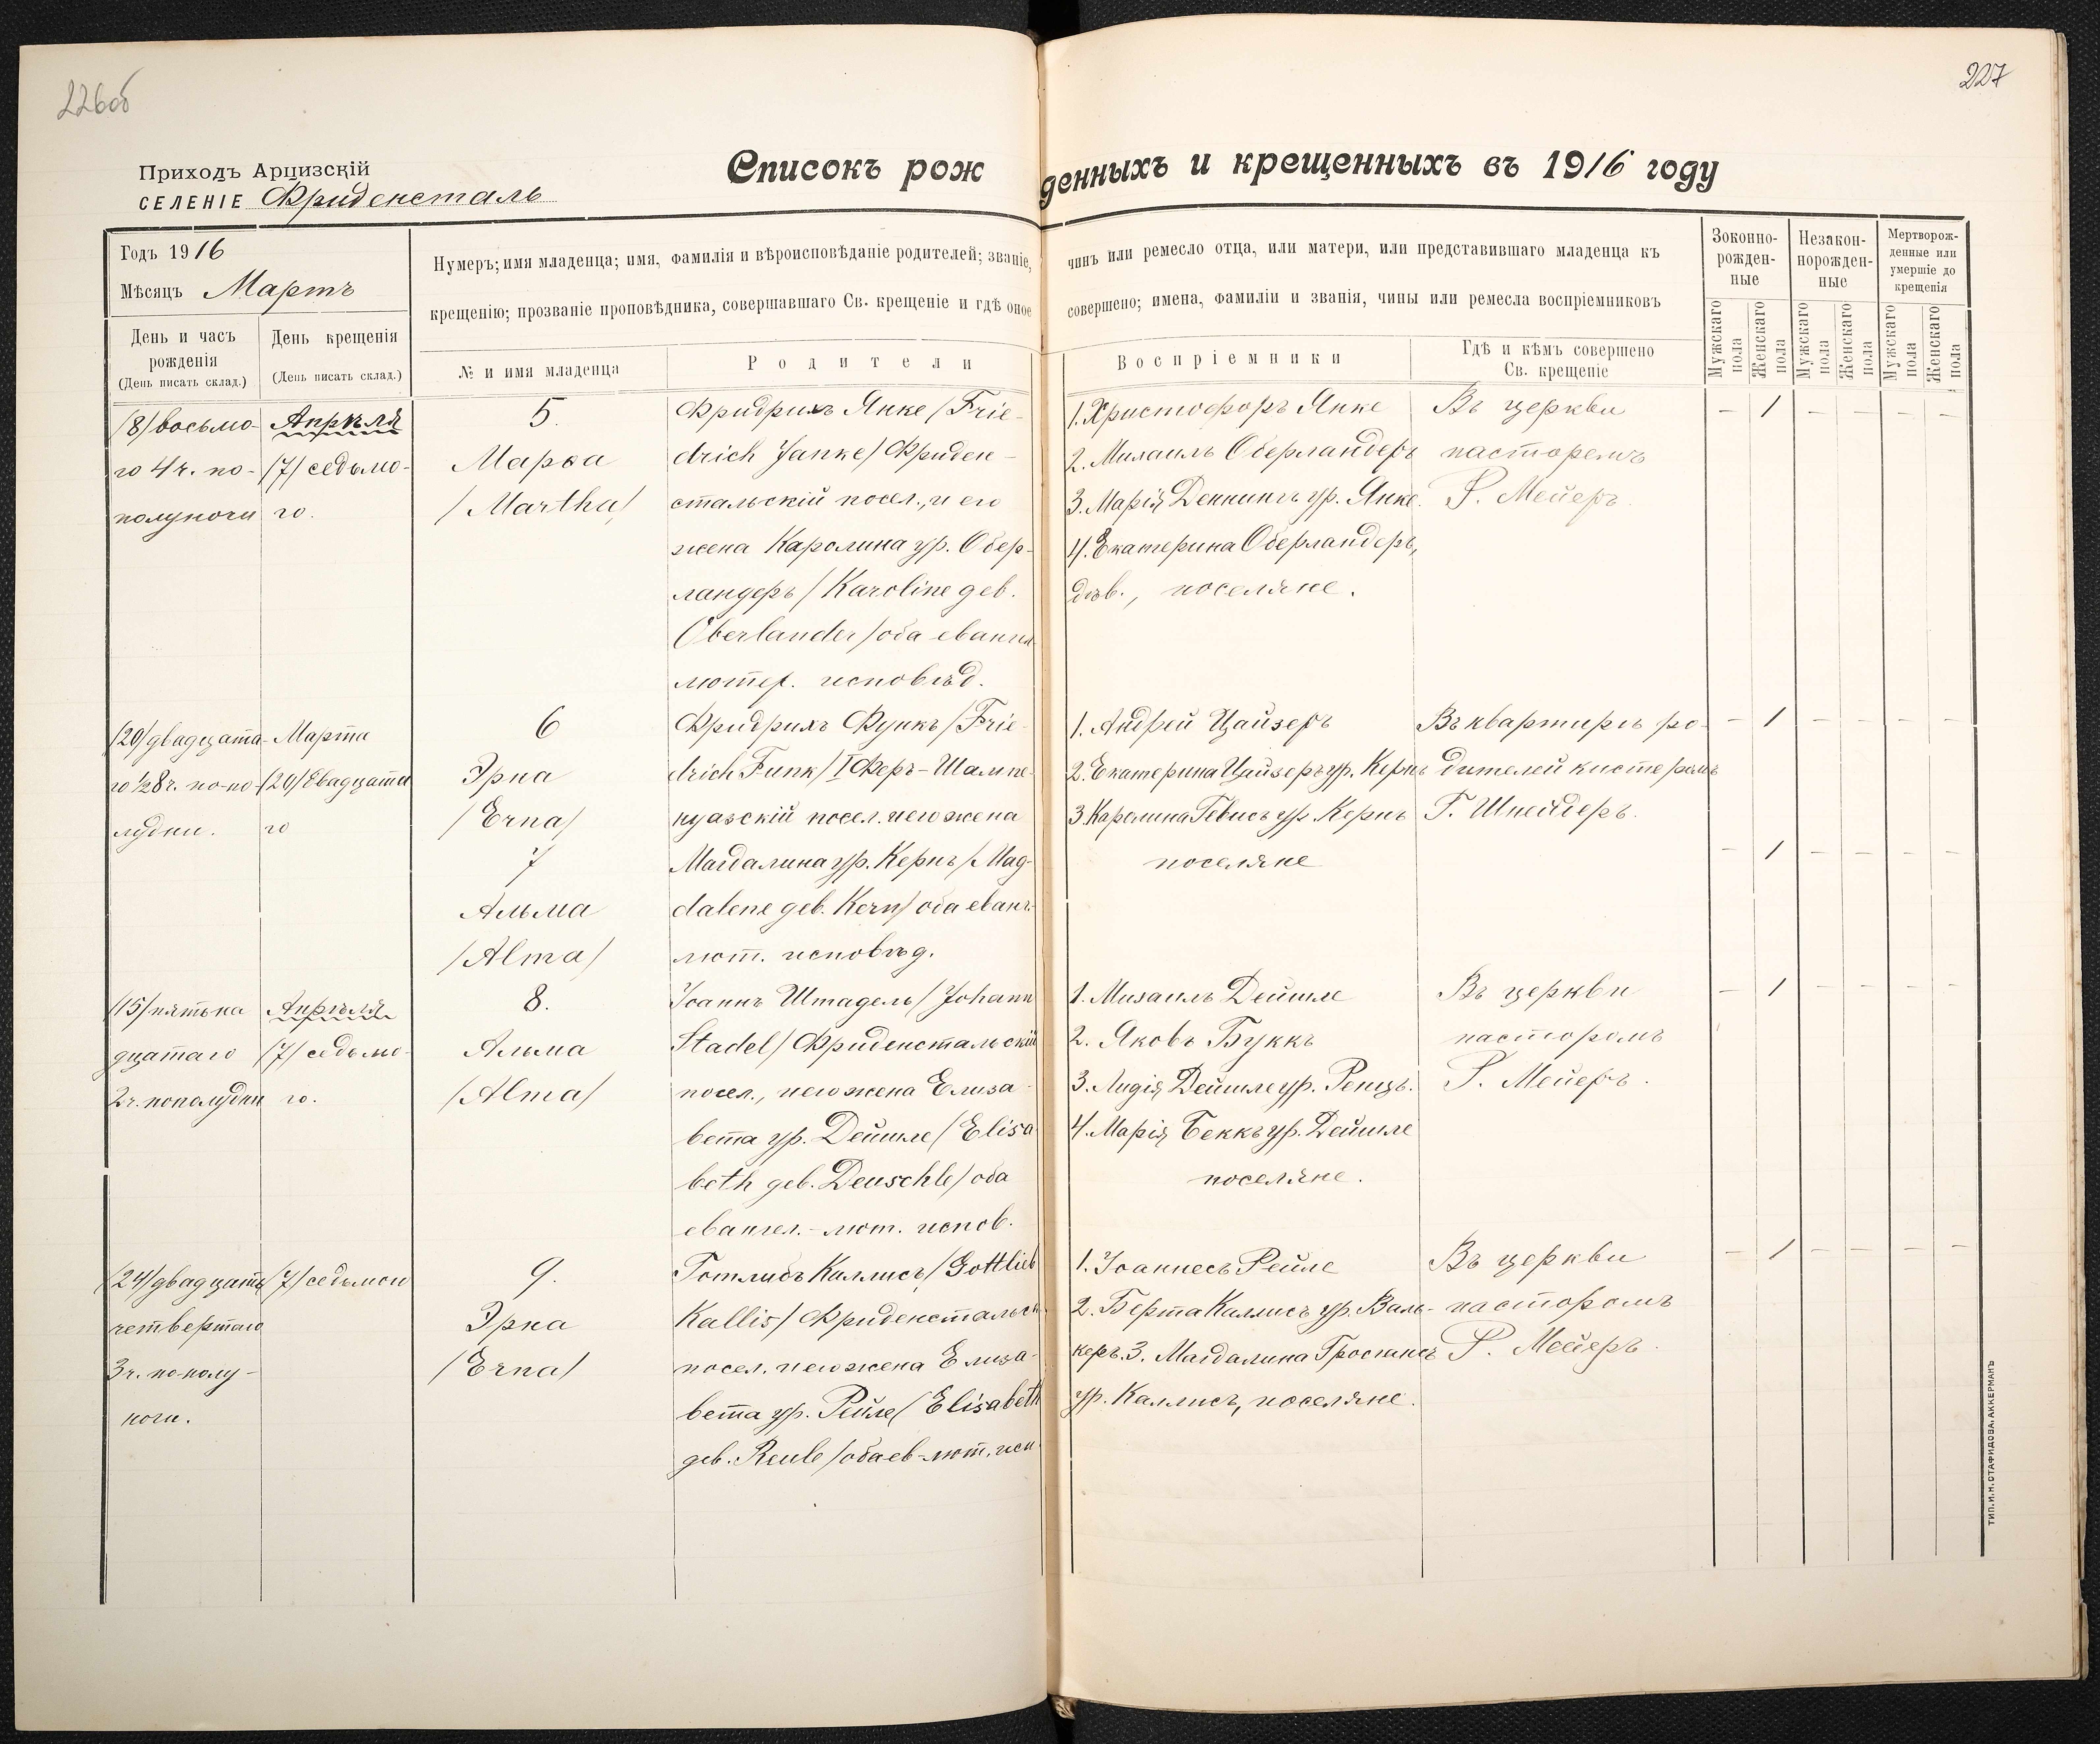 226об
227
Приходъ Арцизскій
СЕЛЕНІЕ Фриденсталь
Списокъ рожденныхъ и крещенныхъ въ 1916 году
Годъ 1916
Мѣсяцъ Мартъ
День и часъ рожденія
(День писать склад.)
День крещенія
(День писать склад.)
Нумеръ; имя младенца; имя, фамилія и вѣроисповѣданіе родителей; званіе, чинъ или ремесло отца, или матери, или представившаго младенца къ
крещенію; прозваніе проповѣдника, совершавшаго Св. крещеніе и гдѣ оное совершено; имена, фамиліи и званія, чины или ремесла воспріемниковъ
№ и имя младенца
Родители
Воспріемники
Гдѣ и кѣмъ совершено
Св. крещеніе
Зоконно-
рожден-
ные
Незакон-
норожден-
ные
Мертворож-
денные или
умершіе до
крещенія
Мужскаго пола
Женскаго пола
Мужскаго пола
Женскаго пола
Мужскаго пола
Женскаго пола
/8/ восьмо-
го 4 ч. по-
полуночи
Апрѣля
/7/ седьмо-
го.
5.
Марѳа
/Martha/
Фридрихъ Янке /Frie-
drich Janke/ Фриден-
стальскій посел., и его
жена Каролина ур. Обер-
ландеръ /Karoline geb.
Oberlander/ оба евангел.
лютер. исповѣд.
1. Христофоръ Янке
2. Михаилъ Оберландеръ
3. Марія Деннингъ ур. Янке.
4. Екатерина Оберландеръ,
дѣв., поселяне.
Въ церкви
пасторомъ
Р. Мейеръ.
– 1 – – – –
/20/ двадцата-
го ½8 ч. по-по-
лудни.
Марта
/20/ двадцата
го
6
Эрна
/Erna/
7
Альма
/Alma/
Фридрихъ Функъ /Frie-
drich Funk/ I Феръ-Шампе-
нуазскій посел. и его жена
Магдалина ур. Кернъ /Mag-
dalene geb. Kern/ оба еванг.
лют. исповѣд.
1. Андрей Цайзеръ
2. Екатерина Цайзеръ ур. Кернъ
3. Каролина Гевисъ ур. Кернъ
поселяне
Въ квартирѣ ро-
дителей кистеромъ
Г. Шнейдеръ.
– 1 – – – –
– 1 – – – –
/15/ пятьна
дцатаго
2 ч. пополудни
Апрѣля
/7/ седьмо-
го.
8.
Альма
/Alma/
Іоаннъ Штадель /Johann
Stadel/ Фриденстальскій
посел., и его жена Елиза-
вета ур. Дейшле /Elisa
beth geb. Deuschle/ оба
евангел.-лют. испов.
1. Михаилъ Дейшле
2. Яковъ Буккъ
3. Лидія Дейшле ур. Ренцъ.
4. Марія Беккъ ур. Дейшле
поселяне.
Въ церкви
пасторомъ
Р. Мейеръ.
– 1 – – – –
/24/ двадцать
четвертаго
3 ч. по-полу-
ночи.
/7/ седьмого
9.
Эрна
/Erna/
Готлибъ Каллисъ /Gottlieb
Kallis/ Фриденстальск.
посел. и его жена Елиза-
вета ур. Рейле /Elisabeth
geb. Reule/ оба ев-лют. исп.
1. Іоаннесъ Рейле
2. Берта Каллисъ ур. Валь-
керъ. 3. Магдалина
ур. Каллисъ, поселяне.
Въ церкви
пасторомъ
Р. Мейеръ.
– 1 – – – –
ТИП. И. Н. СТАФИДОВА. АККЕРМАНЪ